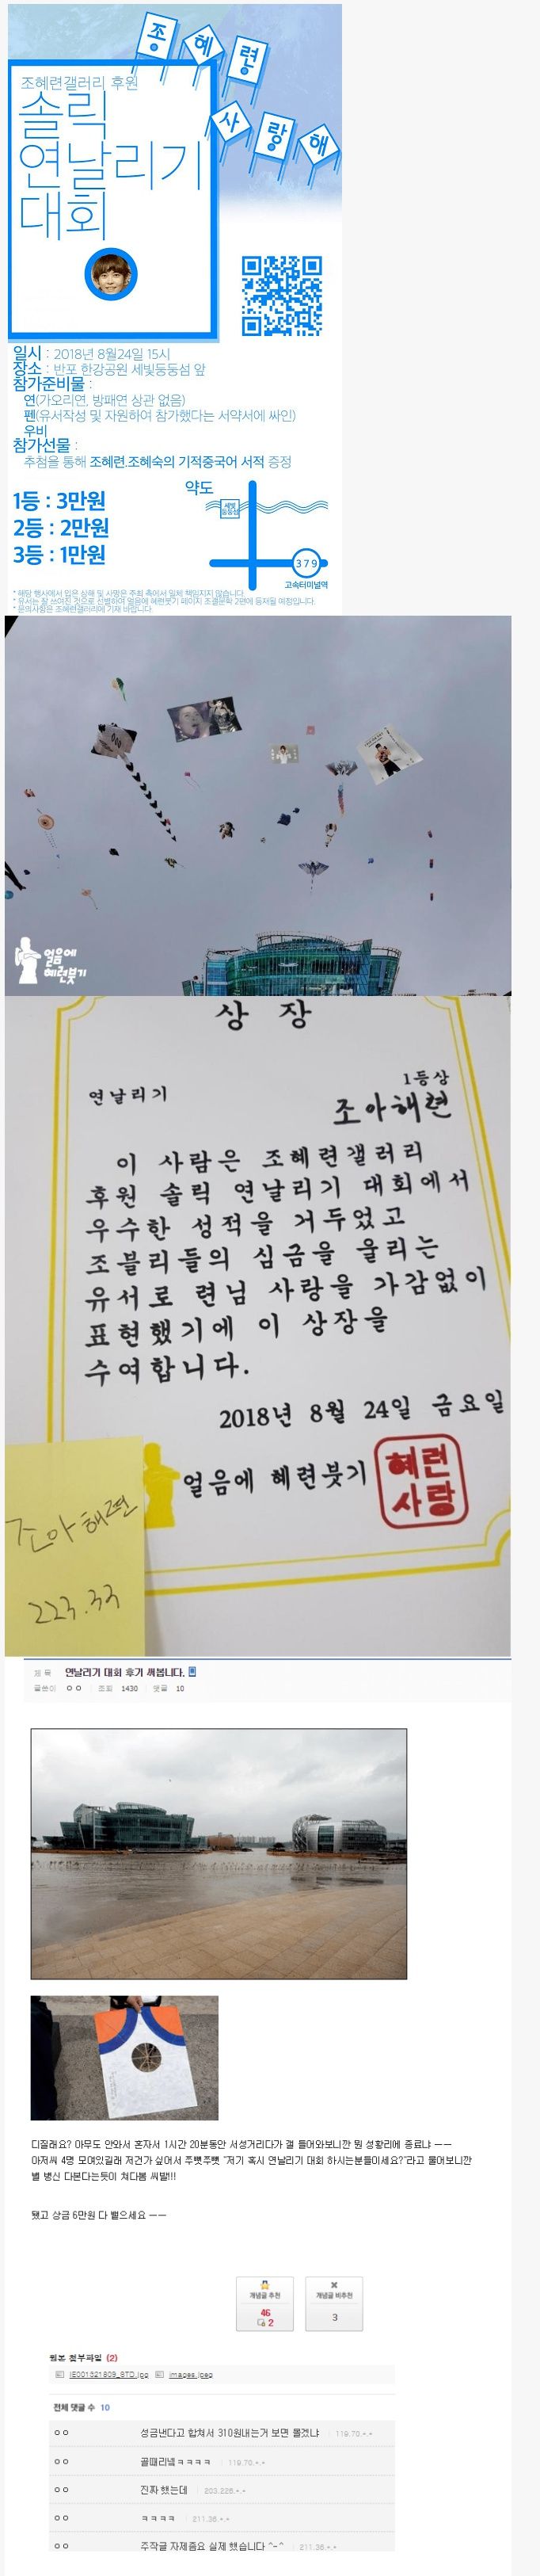 조
혜
련
사
랑
해
조혜련갤러리 후원
솔릭
연날리기
대회
일시 : 2018년 8월24일 15시
장소 : 반포 한강공원 세빛둥둥섬 앞
참가준비물 :
연(가오리연, 방패연 상관 없음)
펜(유서작성 및 자원하여 참가했다는 서약서에 싸인)
우비
참가선물 :
추첨을 통해 조혜련.조혜숙의 기적중국어 서적 증정
약도
세빛
둥둥섬
1등 : 3만원
2등 : 2만원
3등 : 1만원
3 7 9
고속터미널역
* 해당 행사에서 입은 상해 및 사망은 주최 측에서 일체 책임지지 않습니다.
* 유서는 잘 쓰여진 것으로 선별하여 얼음에 혜련붓기 페이지 조결문학 2편에 등재될 예정입니다.
* 문의사항은 조혜련갤러리에 기재 바랍니다.
얼음에
혜련붓기
상 장
연날리기
1등상
조아해련
이 사람은 조혜련갤러리
후원 솔릭 연날리기 대회에서
우수한 성적을 거두었고
조블리들의 심금을 울리는
유서로 련님 사랑을 가감없이
표현했기에 이 상장을
수여합니다.
2018년 8월 24일 금요일
얼음에 혜련붓기
혜련
사랑
조아해련
223.33
제 목 연날리기 대회 후기 써봅니다.
글쓴이 ㅇㅇ 조회 1430 댓글 10
디질래요? 아무도 안와서 혼자서 1시간 20분동안 서성거리다가 갤 들어와보니깐 뭔 성황리에 종료냐 ㅡㅡ
아저씨 4명 모여있길래 저건가 싶어서 쭈뼛쭈뼛 "저기 혹시 연날리기 대회 하시는분들이세요?"라고 물어보니깐
별 병신 다본다는듯이 쳐다봄 씨발!!!
됐고 상금 6만원 다 뱉으세요 ㅡㅡ
개념글 추천
46
2
개념글 비추천
3
원본 첨부파일 (2)
IE001321809_STD.jpg images.jpeg
전체 댓글 수 10
ㅇㅇ 성금낸다고 합쳐서 310원내는거 보면 몰겠냐 119.70.*.*
ㅇㅇ 골때리넼ㅋㅋㅋㅋ 119.70.*.*
ㅇㅇ 진짜 했는데 203.226.*.*
ㅇㅇ ㅋㅋㅋㅋ 211.36.*.*
ㅇㅇ 주작글 자제좀요 실제 했습니다 ^-^ 211.36.*.*